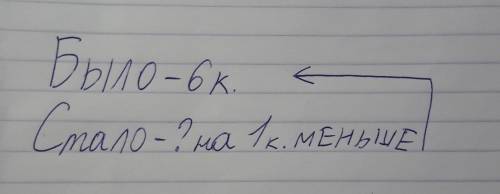 Было-6к.
Стало-? на 1к. меньше